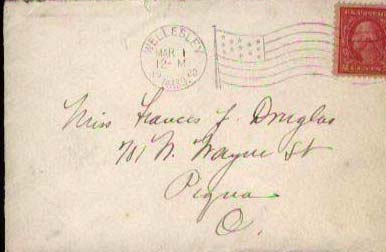 WELLESLEY
MAR 1
12-M
Miss Frances J. Douglas
701 N. Wayne St
Piqua
O.